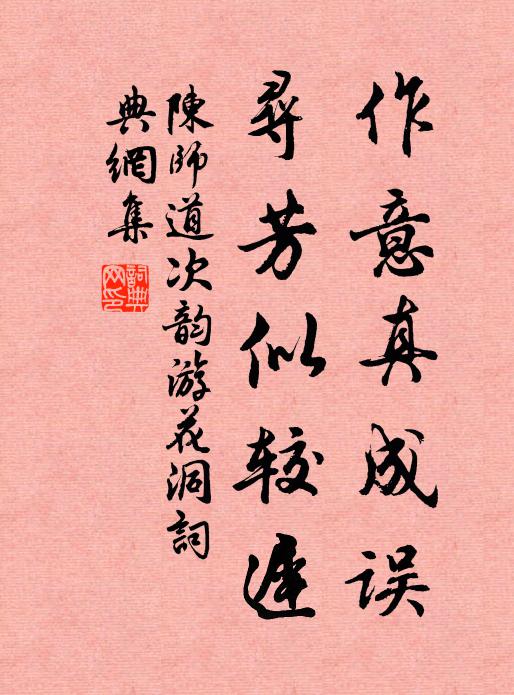 作意真成误
尋芳似较遲
陳師道次韵游花洞詞
典網集
詞典
网印